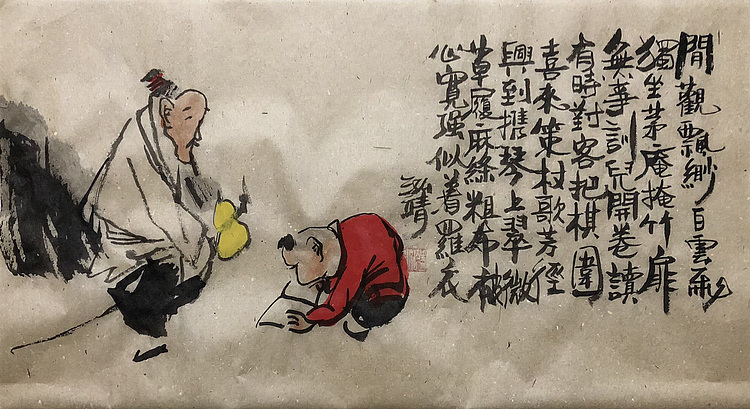 閒觀飄緲白雲飛
獨坐茅庵掩竹扉
無事訓兒開卷讀
有時對客把棋圍
喜來策杖歌芳徑
興到携琴上翠微
草履麻絲粗布被
心寬强似着羅衣